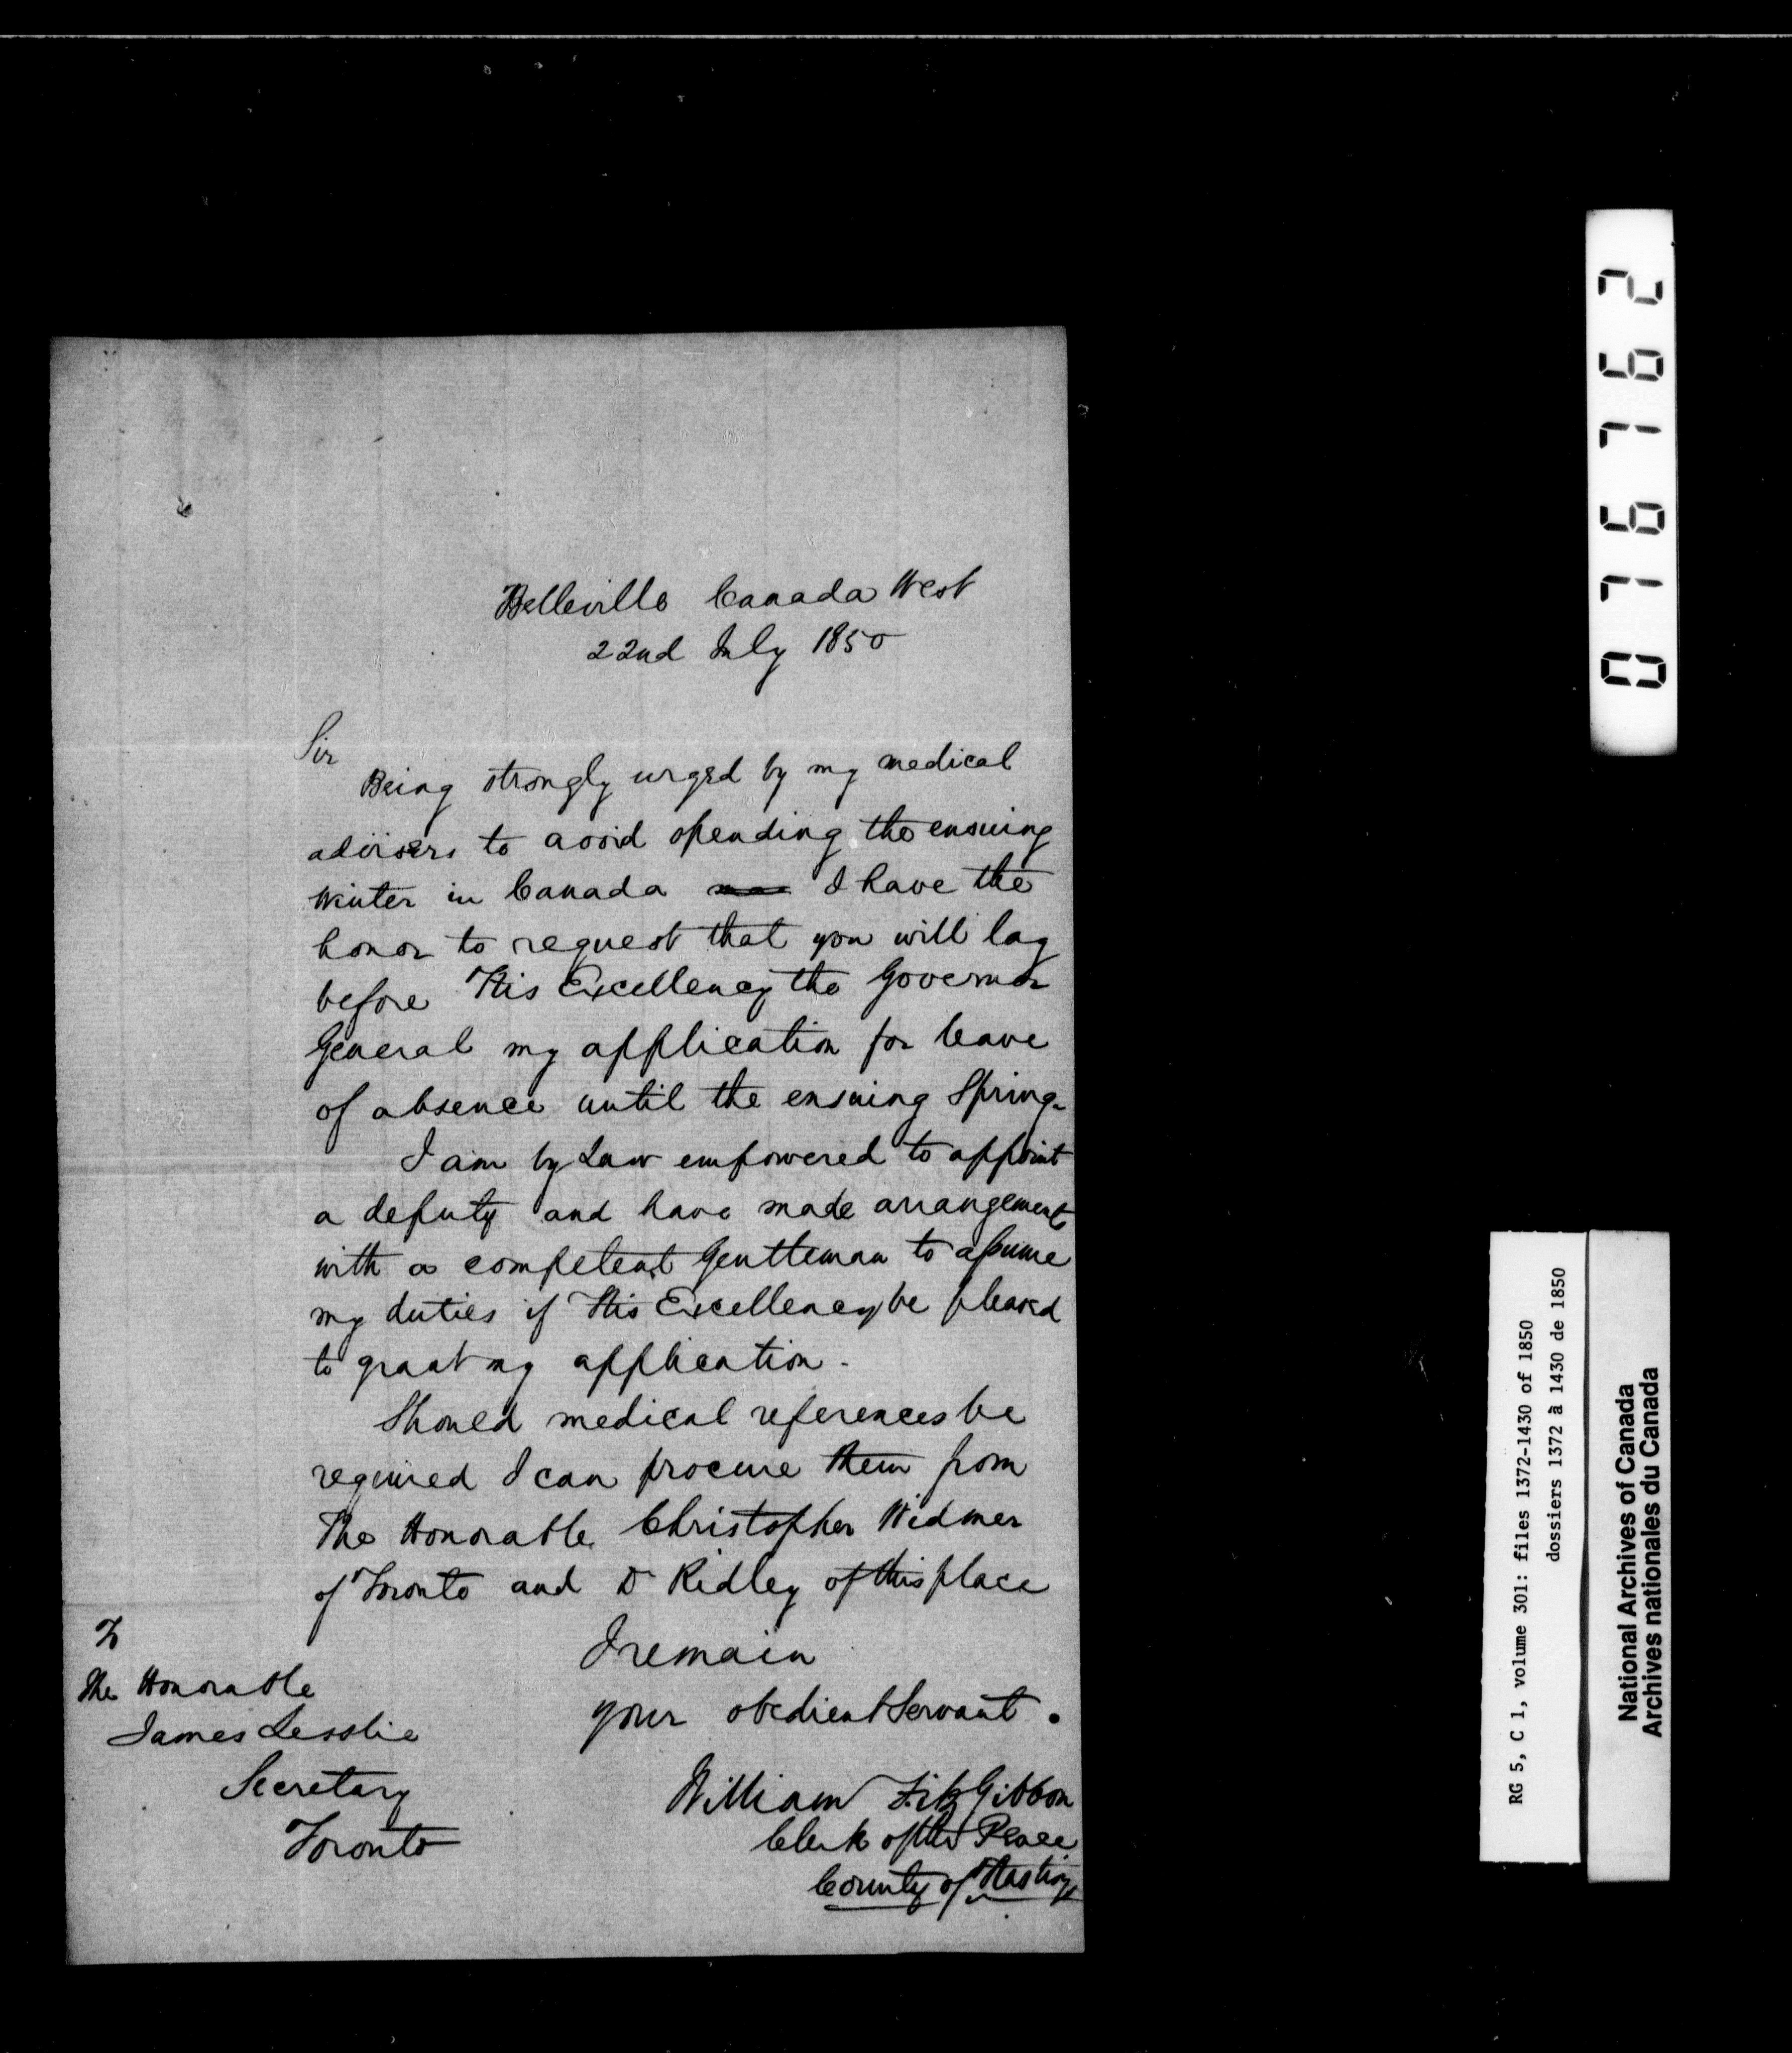 Belleville Canada West
22nd July 1850
Sir
Being strongly urged by my medical
advisers to avoid spending the ensuing
Winter in Canada I have the
honor to request that you will lay
before His Excellency the Governor
General my application for leave
of absence until the ensuing Spring.
I am by Law empowered to appoint
a deputy and have made arrangements
with a competent Gentleman to assume
my duties if His Excellency be pleased
to grant my application.
Should medical references be
required I can procure them from
The Honorable Christopher Widmer
of Toronto and Dr Ridley of this place
I remain
your obedient Servant.
William FitzGibbon
Clerk of the Peace
County of Hastings
To
The Honorable
James Lesslie
Secretary
Toronto
076762
RG 5, C 1, volume 301: files 1372-1430 of 1850
dossiers 1372 à 1430 de 1850
National Archives of Canada
Archives nationales du Canada